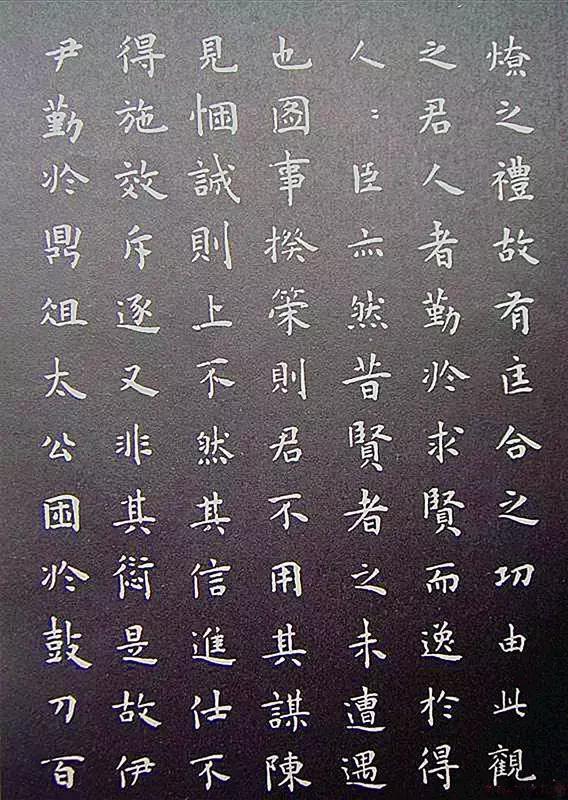 燎之禮故有匡合之功由此觀
之君人者勤於求賢而逸於得
人：臣亦然昔賢者之未遭遇
也圖事揆策則君不用其謀陳
見悃誠則上不然其信進仕不
得施效斥逐又非其愆是故伊
尹勤於鼎俎太公困於鼓刀百